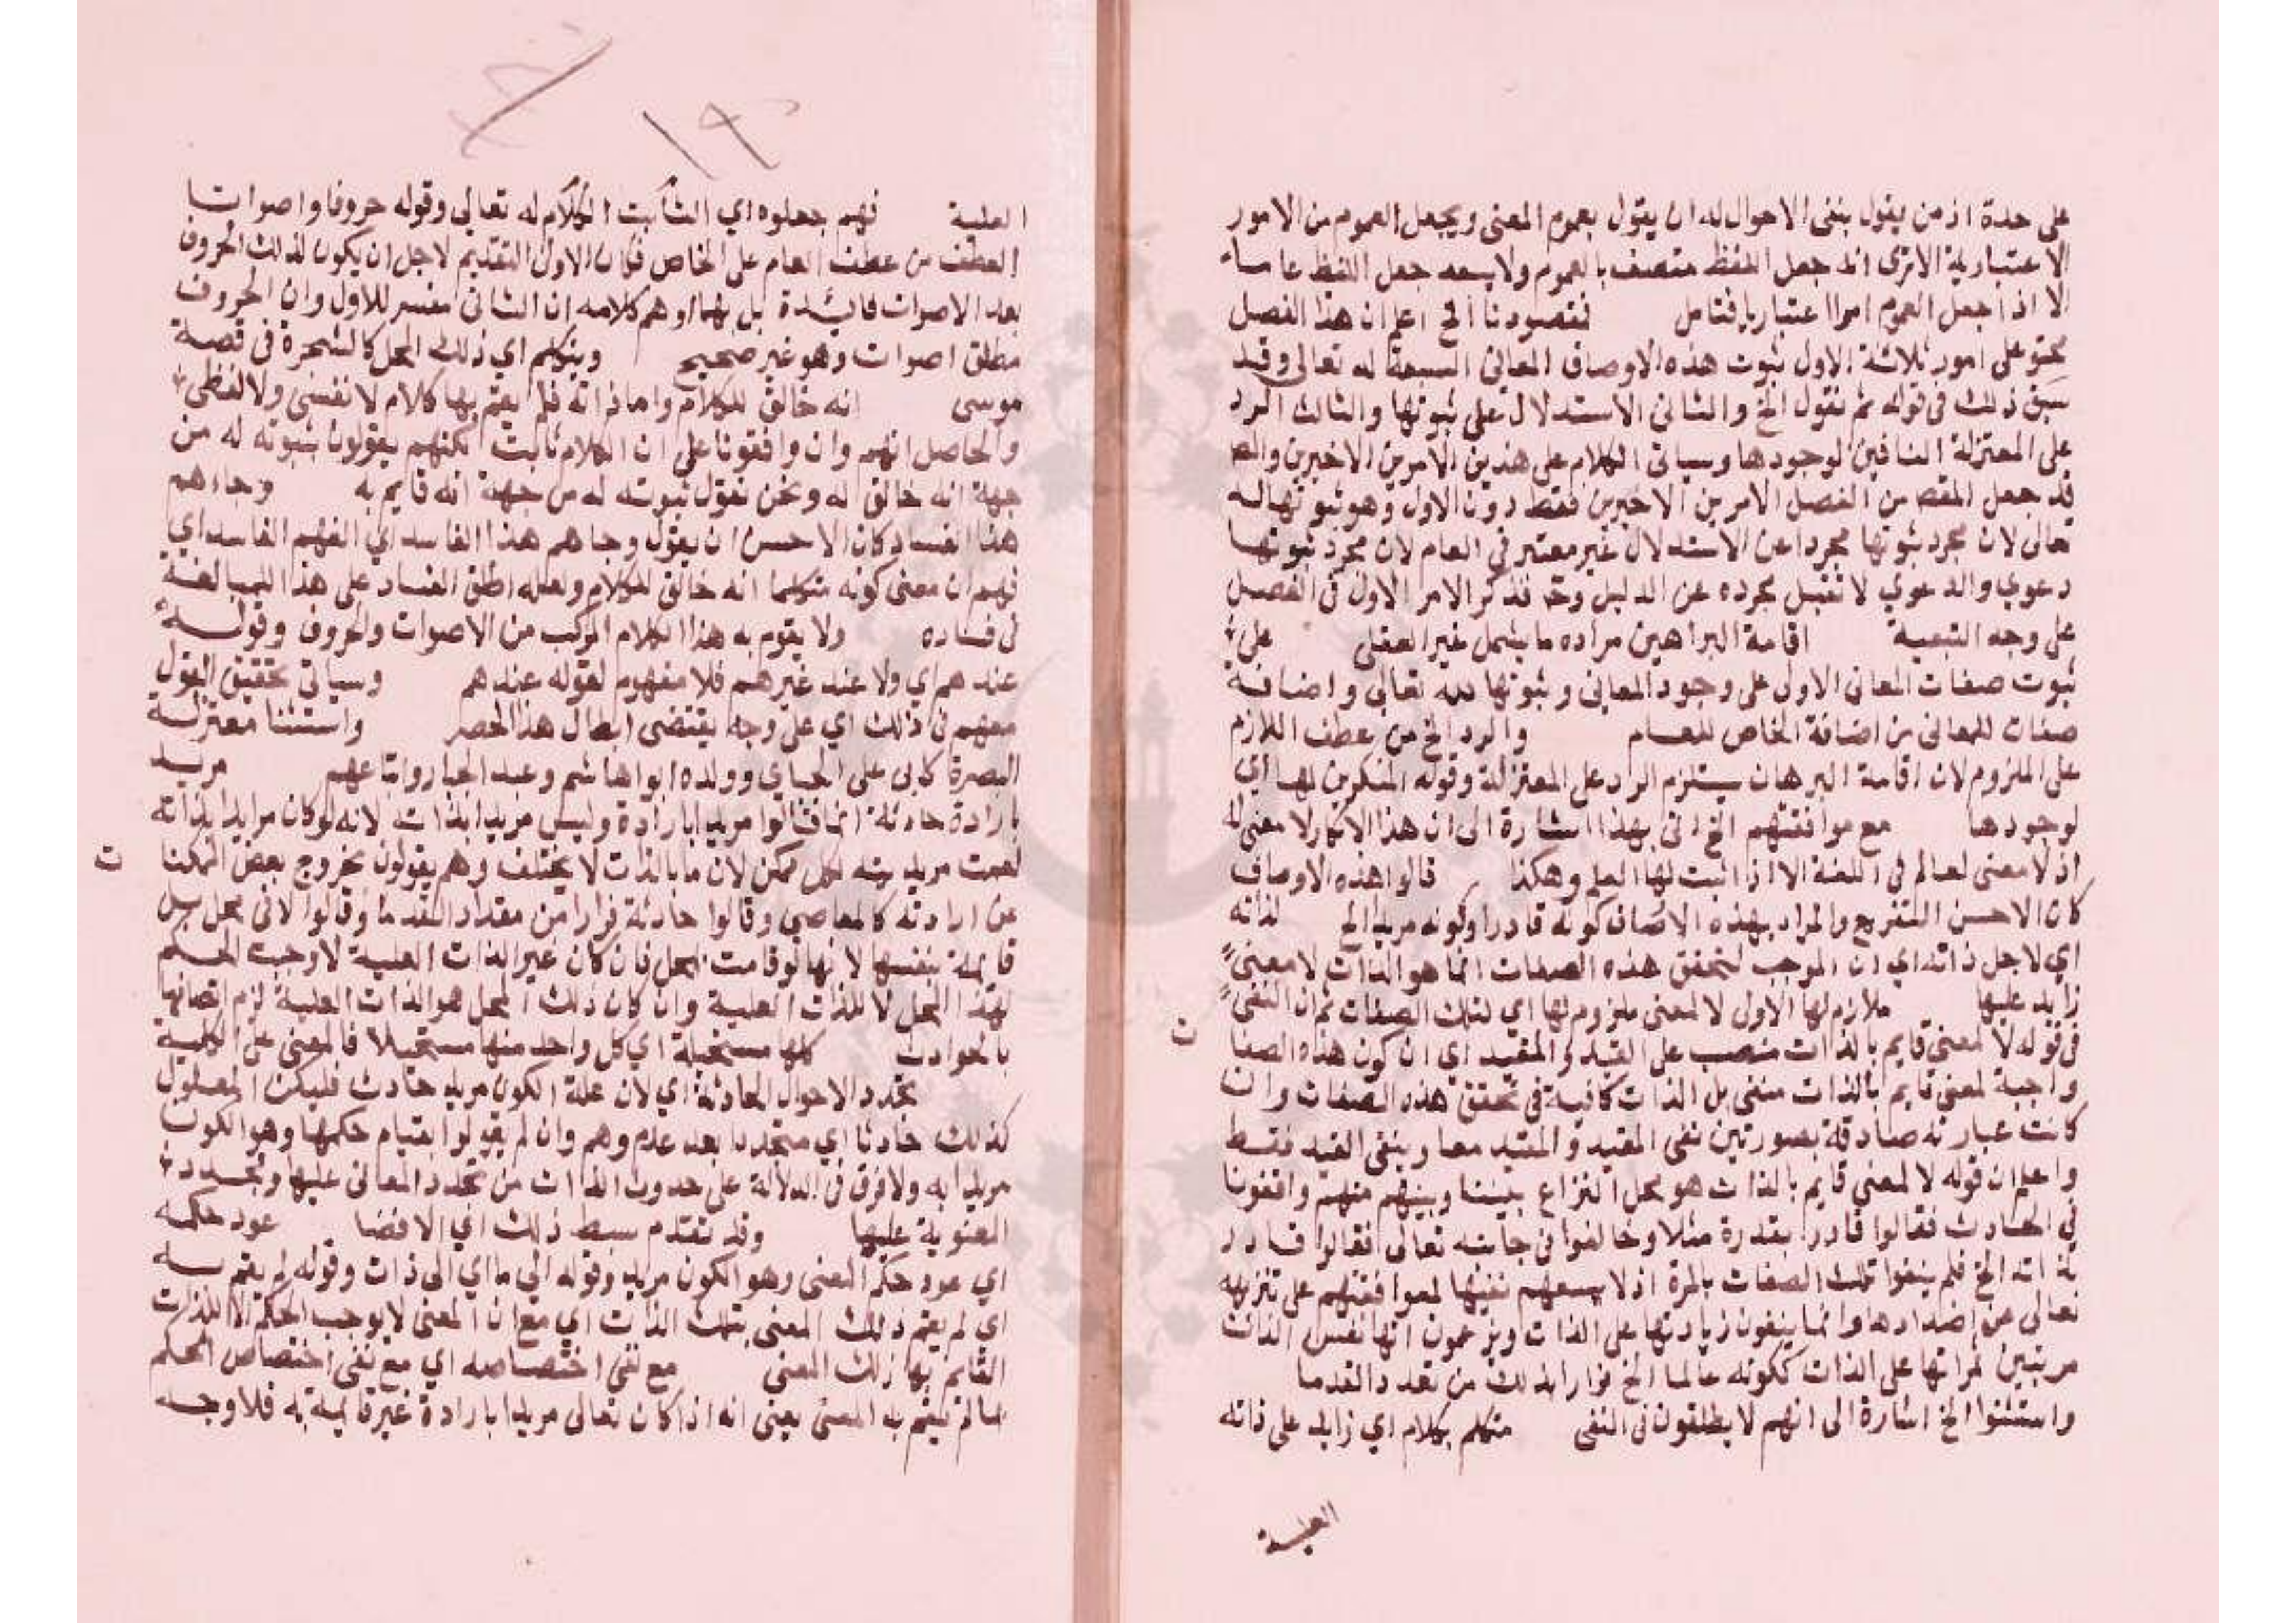 على حدة اذ من يقول بنفى الاحوال له ان يقول بعموم المعنى ويجعل العموم من الامور
الاعتبارية الاترى انه جعل اللفظ متصف بالعموم ولا يسعه جعل اللفظ عاما
الا اذا جعل العموم امرا اعتباريا فتامل فقصودنا الخ اعلم ان هذا الفصل
يحتو على امور ثلاثة الاول ثبوت هذه الاوصاف المعانى السبعة له تعالى وقد
سبق ذلك فى قوله ثم نقول الخ والثانى الاستدلال على ثبوتها والثالث الرد
على المعتزلة النافين لوجودها وسياتى الكلام على هذين الامرين الاخيرين والمص
قد جعل المقص من الفصل الامرين الاخيرين فقط دون الاول وهو ثبوتها له
تعالى لان مجرد ثبوتها مجردا عن الاستدلال غير معتبر فى العام لان مجرد ثبوتها
دعوي والدعوي لا تقبل مجرده عن الدليل وح فذكر الامر الاول فى الفصل
على وجه التبعية اقامة البراهين مراده ما يشمل غير العقلى على
ثبوت صفات المعانى الاولى على وجود المعانى وثبوتها لله تعالى واضافة
صفات للمعانى من اضافة الخاص للعام والرد الخ من عطف اللازم
على الملزوم لان اقامة البرهان يستلزم الرد على المعتزلة وقوله المنكرين لها اي
لوجودها مع موافقتهم الخ اتى بهذا اشارة الى ان هذا الانكار لا معنى له
اذ لا معنى لعالم فى اللغة الا اذا اثبت لها العلم وهكذا قالوا هذه الاوصاف
كان الاحسن التفريع والمراد بهذه الاوصاف كونه قادرا وكونه مريدا الخ لذاته
اي لاجل ذاته اي ان الموجب لتحقق هذه الصفات انما هو الذات لا معنى
زايد عليها ملازم لها الاولى لا لمعنى ملزوم لها اي لتلك الصفات ثم ان النفى
فى قوله لا لمعنى قايم بالذات منصب على القيد والمقيد اي ان كون هذه الصفا ت
واجبة لمعنى قايم بالذات منفى بل الذات كافية فى تحقق هذه الصفات وان
كانت عبارته صادقة بصورتين نفى المقيد والمقيد معا وبنفى القيد فقط
واعلم ان قوله لا لمعنى قايم بالذات هو محل النزاع بيننا وبينهم منهم وافقونا
فى الحادث فقالوا قادرا بقدرة مثلا وخالفوا فى جانبه تعالى فقالوا قادر
لذاته الخ فلم ينفوا تلك الصفات بالمرة اذ لا يسعهم نفيها لموافقتهم على تنزيهه
تعالى عن اضدادها وانما ينفون زيادتها على الذات ويزعمون انها نفس الذات
مرتبين ثمراتها على الذات ككونه عالما الخ فرارا بذلك من تعدد القدما
واستثنوا الخ اشارة الى انهم لا يطلقون فى النفى متكلم بكلام اي زايد على ذاته
العلية
العلية فهم جعلوه اي الثابت الكلام له تعالى وقوله حروفا واصواتا
العطف من عطف العام على الخاص فكان الاولى التقديم لاجل ان يكون لذلك الحروف
بعد الاصوات فائدة بل بهما اوهم كلامه ان الثانى مفسر للاول وان الحروف
مطلق اصوات وهو غير صحيح ويتكلم اي ذلك المحل كالشجرة فى قصة
موسى انه خالق للكلام واما ذاته فلم يقم بها كلام لا نفسى ولا لفظى
والحاصل انهم وان وافقونا على ان الكلام ثابت لكنهم يقولون بثبوته له من
جهة انه خالق له ونحن نقول ثبوته له من جهة انه قايم به وجاءهم
هذا الفساد كان الاحسن ان يقول وجاهم هذا الفاسد اي الفهم الفاسد اي
فهم ان معنى كونه متكلما انه خالق للكلام ولعله اطلق الفساد على هذا للمبالغة
فى فساده ولا يقوم به هذا الكلام المركب من الاصوات والحروف وقوله
عندهم اي ولا عند غيرهم فلا مفهوم لقوله عندهم وسياتى تحقيق القول
معهم فى ذلك اي على وجه يقتضى ابطال هذا الحصر واستثنا معتزلة
البصرة كابى على الجباي وولده ابو اهاشم وعبد الجبار واتباعهم مريد
بارادة حادثة انما قالوا مريدا بارادة وليس مريدا بذاته لانه لو كان مرايدا بذاته
لعمت مريديته كل ممكن لان ما بالذات لا يختلف وهم يقولون بخروج بعض الممكنا ت
عن ارادته كالمعاصي وقالوا حادثة فرارا من مقداد القدما وقالوا لا فى محل بل
قايمة بنفسها لانها لو قامت بمحل فان كان غير الذات العلية لاوجبت الحكم
لهذا المحل لا للذات العلية وان كان ذلك المحل هو الذات العلية لزم اتصافها
بالحوادث كلها مستحيلة اي كل واحد منها مستحيلا فالمعنى على الكلية
تجدد الاحوال الحادثة اي لان علة الكون مريد حادث فليكن المعلول
كذلك حادثا اي متجددا بعد عدم وهم وان لم يقولوا بقيام حكمها وهو الكون
مريدا به ولا فرق فى الدلالة على حدوث الذات من تجدد المعانى عليها وتجدد
المعنوية عليها وقد تقدم بسط ذلك اي الافضا عود حكمه
اي عود حكم المعنى وهو الكون مريد وقوله الى ما اي الى ذات وقوله لم يقم به
اي لم يقم ذلك المعنى بتلك الذات اي مع ان المعنى لا يوجب الحكم الا للذات
القايم بها ذلك المعنى مع نفى اختصاصه اي مع نفى اختصاص الحكم
لما لم يقم به المعنى يعنى انه اذا كان تعالى مريدا بارادة غير قايمة به فلا وجه